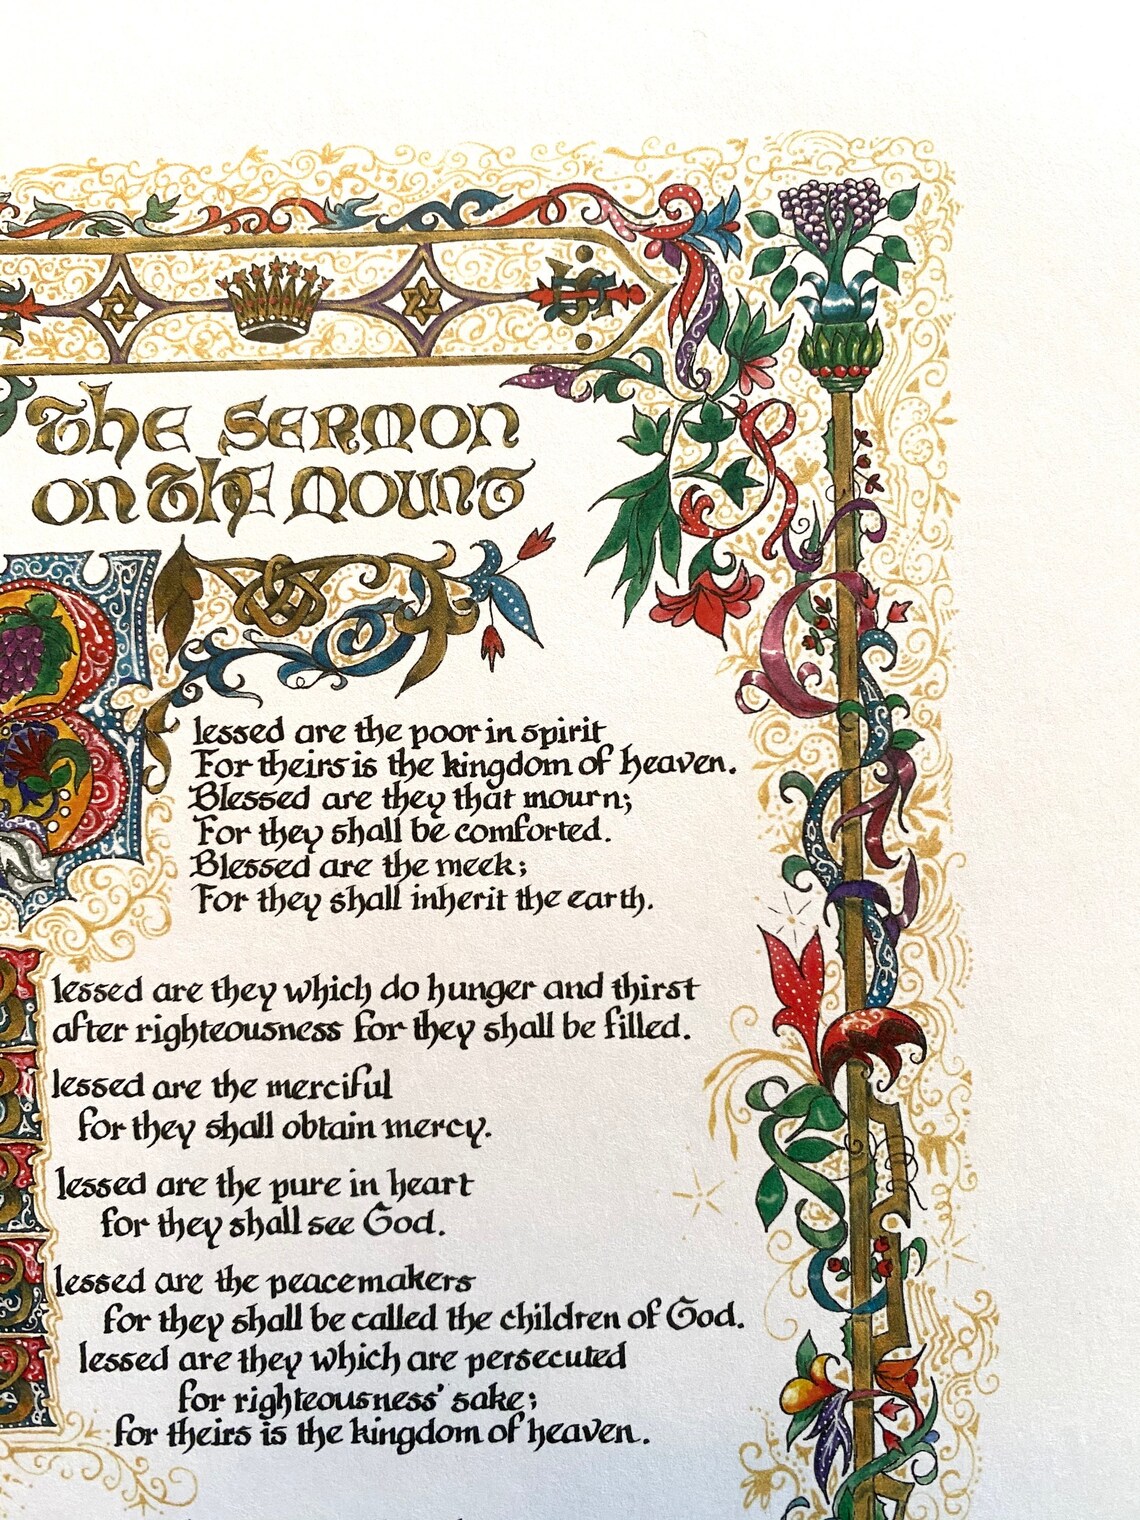 The Sermon
on the Mount
Blessed are the poor in spirit
For theirs is the kingdom of heaven.
Blessed are they that mourn;
For they shall be comforted.
Blessed are the meek;
For they shall inherit the earth.
Blessed are they which do hunger and thirst
after righteousness for they shall be filled.
Blessed are the merciful
for they shall obtain mercy.
Blessed are the pure in heart
for they shall see God.
Blessed are the peacemakers
for they shall be called the children of God.
Blessed are they which are persecuted
for righteousness' sake;
for theirs is the kingdom of heaven.